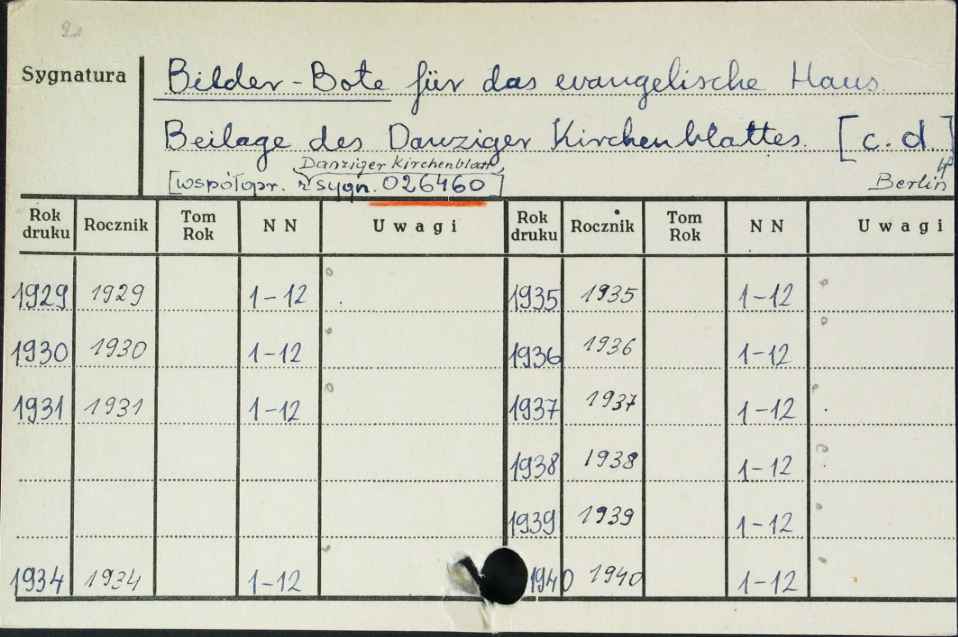 21
Sygnatura
Bilder-Bote für das evangelische Haus.
Beilage des Danziger Kirchenblattes. [c.d]
Danziger Kirchenblatt
[współopr. z sygn. 026460]
4°
Berlin
Rok druku Rocznik Tom Rok NN Uwagi Rok druku Rocznik Tom Rok NN Uwagi
1929 1929 1-12 1935 1935 1-12
1930 1930 1-12 1936 1936 1-12
1931 1931 1-12 1937 1937 1-12
1938 1938 1-12
1939 1939 1-12
1934 1934 1-12 1940 1940 1-12